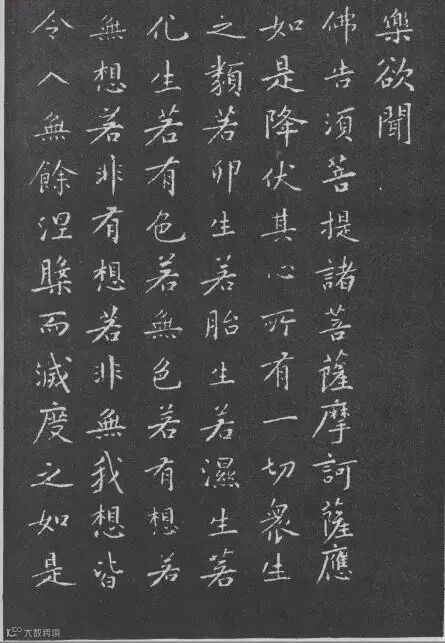 樂欲聞
佛告須菩提諸菩薩摩訶薩應
如是降伏其心所有一切衆生
之類若卵生若胎生若濕生若
化生若有色若無色若有想若
無想若非有想若非無我想皆
令入無餘涅槃而滅度之如是
大数跨境